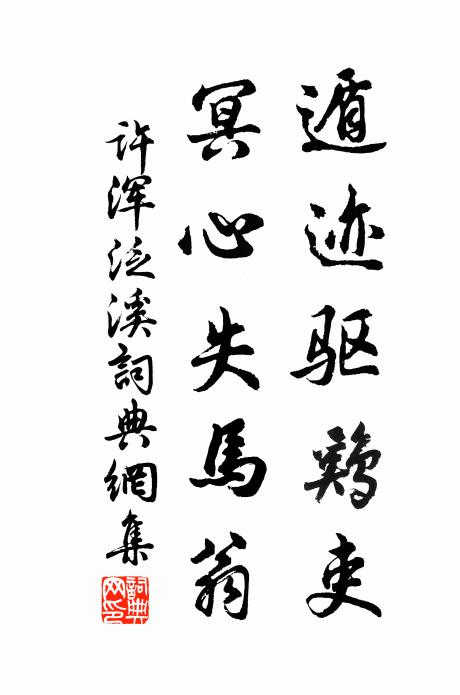 遁迹驱鷄吏
冥心失馬翁
许浑泛溪詞典網集
詞典网印